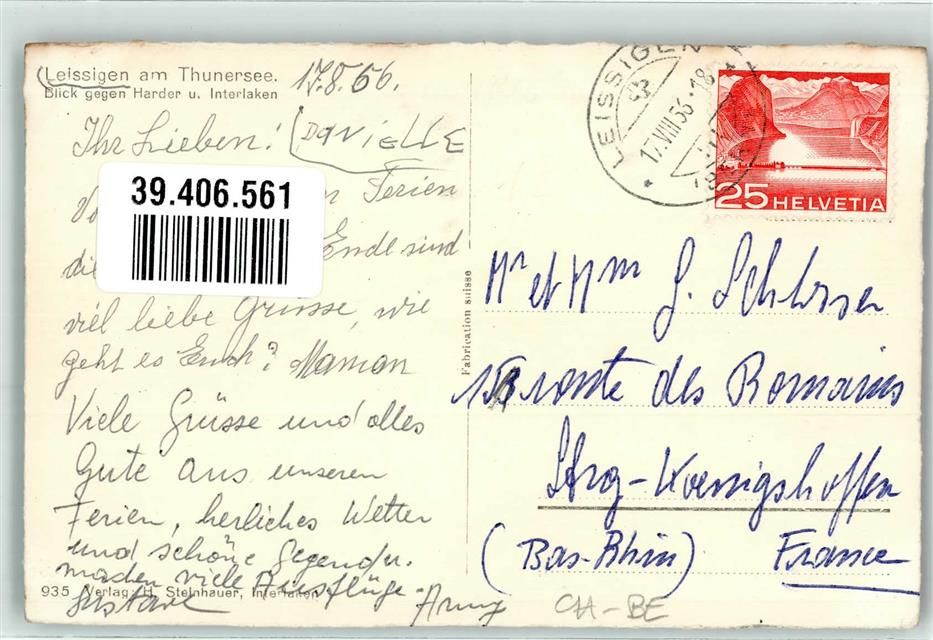 Leissigen am Thunersee.
Blick gegen Harder u. Interlaken
17.8.56.
Ihr Lieben! DaniELLE
39.406.561
Ferien
die Ende sind
viel liebe Grüsse, wie
geht es Euch? Maman
Viele Grüsse und alles
Gute aus unseren
Ferien, herliches Wetter
und schöne Gegend u.
machen viele Ausflüge
Gustave
935 Verlag: H. Steinhauer, Interlaken
Fabrication suisse
LEISSIGEN
17.VIII.56-18
25 HELVETIA
Mr et Mme G. Schlosser
route des Romains
Strg-Koenigshoffen
(Bas-Rhin) France
CH-BE